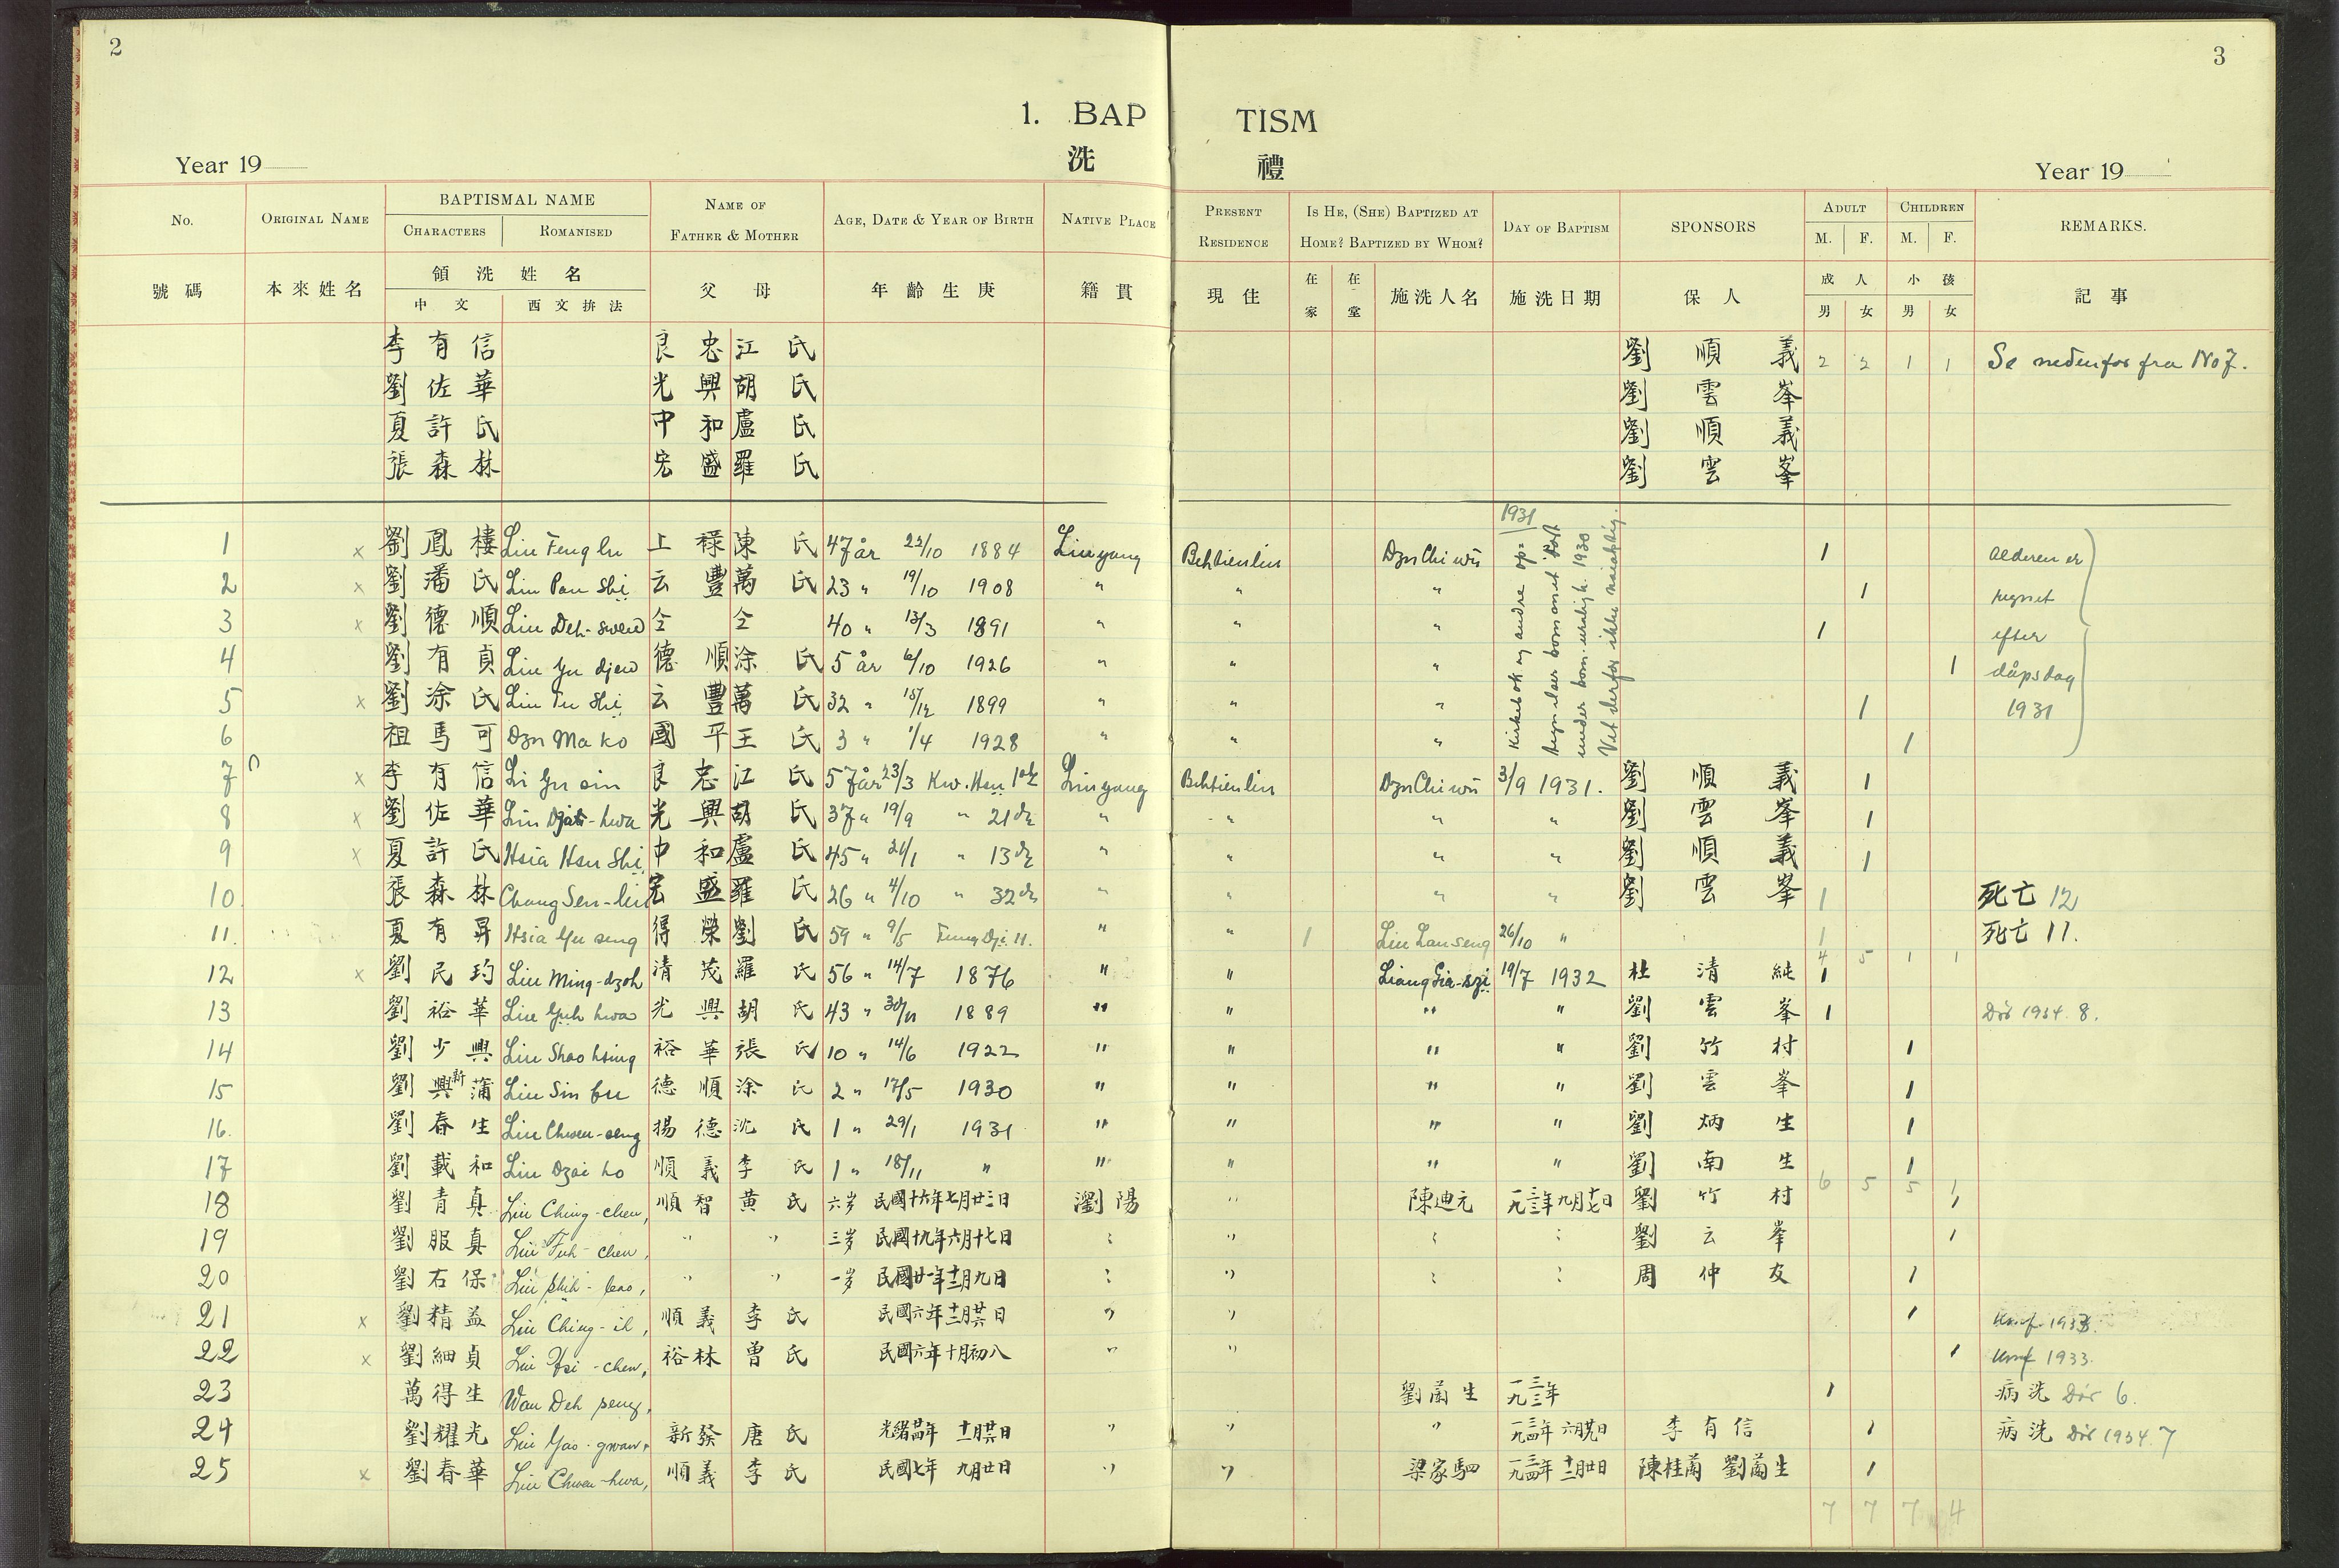 2
3
1. BAP TISM
洗 禮
Year 19
Year 19
No. ORIGINAL NAME BAPTISMAL NAME NAME OF FATHER & MOTHER AGE, DATE & YEAR OF BIRTH NATIVE PLACE PRESENT RESIDENCE IS HE, (SHE) BAPTIZED AT HOME? BAPTIZED BY WHOM? DAY OF BAPTISM SPONSORS ADULT CHILDREN REMARKS.
CHARACTERS ROMANISED M. F. M. F.
號碼 本來姓名 領洗姓名 父母 年齡生庚 籍貫 現住 在家 在堂 施洗人名 施洗日期 保人 成人 小孩 記事
中文 西文拚法 男 女 男 女
李有信 良忠 江氏 劉順義 2 2 1 1 Se nedenfor fra No 7.
劉佐華 光興 胡氏 劉雲峯
夏許氏 中和 盧氏 劉順義
張森林 宏盛 羅氏 劉雲峯
1931
1 x 劉鳳樓 Liu Feng lu 上祿 陳氏 47 år 22/10 1884 Liuyang Behtienliu Dzu Chi wu 1 Alderen er
2 x 劉潘氏 Liu Pan Shi 云豐 萬氏 23 " 19/10 1908 " " " 1 regnet
3 x 劉德順 Liu Deh-swen 仝 仝 40 " 13/3 1891 " " " 1 efter
4 劉有貞 Liu Yu djen 德順 涂氏 5 år 6/10 1926 " " " 1 dåpsdag
5 x 劉涂氏 Liu Tu Shi 云豐 萬氏 32 " 15/12 1899 " " " 1 1931
6 祖馬可 Dzu Ma ko 國平 王氏 3 " 1/4 1928 " " " 1
Kirkebok og andre op=
7 x 李有信 Li Yu sin 良忠 江氏 57 år 23/3 Kw. Hsu 1 Liuyang Behtienliu Dzu Chi wu 3/9 1931. 劉順義 1
8 x 劉佐華 Liu Djati-hwa 光興 胡氏 37 " 19/9 " 21 " " " " 劉雲峯 1
9 x 夏許氏 Hsia Hsu Shi 中和 盧氏 45 " 21/1 " 13 " " " " 劉順義 1
10. 張森林 Chang Sen-lin 宏盛 羅氏 26 " 4/10 " 32 " " " " 劉雲峯 1 死亡 12
11. 夏有昇 Hsia Yu seng 得榮 劉氏 59 " 9/5 Tung Dji 11. " " 1 Liu Lan seng 26/10 " 1 死亡 11.
4 5 1 1
12 x 劉民玓 Liu Ming-dzoh 清茂 羅氏 56 " 14/7 1876 " " Liang Gia-szi 19/7 1932 杜清純 1
13 劉裕華 Liu Yuh hwa 光興 胡氏 43 " 30/11 1889 " " " " 劉雲峯 1 Död 1934. 8.
14 劉少興 Liu Shao hsing 裕華 張氏 10 " 14/6 1922 " " " " 劉竹村 1
15 劉興新蒲 Liu Sin fu 德順 涂氏 2 " 17/5 1930 " " " " 劉雲峯 1
16. 劉春生 Liu Chwen-seng 揚德 沈氏 1 " 29/1 1931 " " " " 劉炳生 1
17 劉載和 Liu Dzai ho 順義 李氏 1 " 18/11 " " " " " 劉南生 1
6 5 5 1
18 劉青真 Liu Ching-chen, 順智 黃氏 六岁 民國十六年七月廿三日 瀏陽 " 陳迪元 一九三三年九月十七日 劉竹村 1
19 劉服真 Liu Fuh-chen, " " 三岁 民國十九年六月十七日 : " : : 劉云峯 1
20 劉石保 Liu Shih-bao, " " 一岁 民國廿一年十二月九日 : " : : 周仲友 1
21 x 劉精益 Liu Ching-ih, 順義 李氏 民國六年十二月廿六日 " " 1 Konf. 1933.
22 x 劉細貞 Liu Hsi-chen, 裕林 曾氏 民國六年十月初八 " " 1 Konf 1933.
23 萬得生 Wan Deh seng, 劉蘭生 一九三三年 1 病洗 Död 6.
24 劉耀光 Liu Yao-gwan, 新發 唐氏 光緒廿四年 十一月廿六日 " " " 一九三四年 六月廿九日 李有信 1 病洗 Död 1934. 7
25 x 劉春華 Liu Chwen-hwa, 順義 李氏 民國七年 九月廿日 " " 梁家駟 一九三四年十二月廿日 陳桂蘭 劉蘭生 1
7 7 7 4